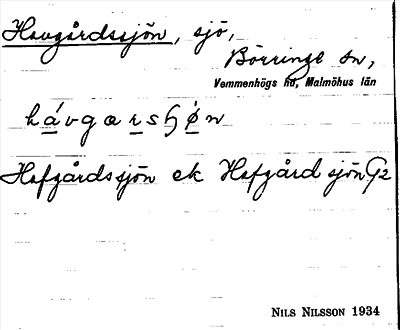 Havgårdssjön, sjö,
Börringe sn,
Vemmenhögs hd, Malmöhus län
hávgarsɧǿn
Hafgårdssjön ek Hafgård sjön G2
NILS NILSSON 1934